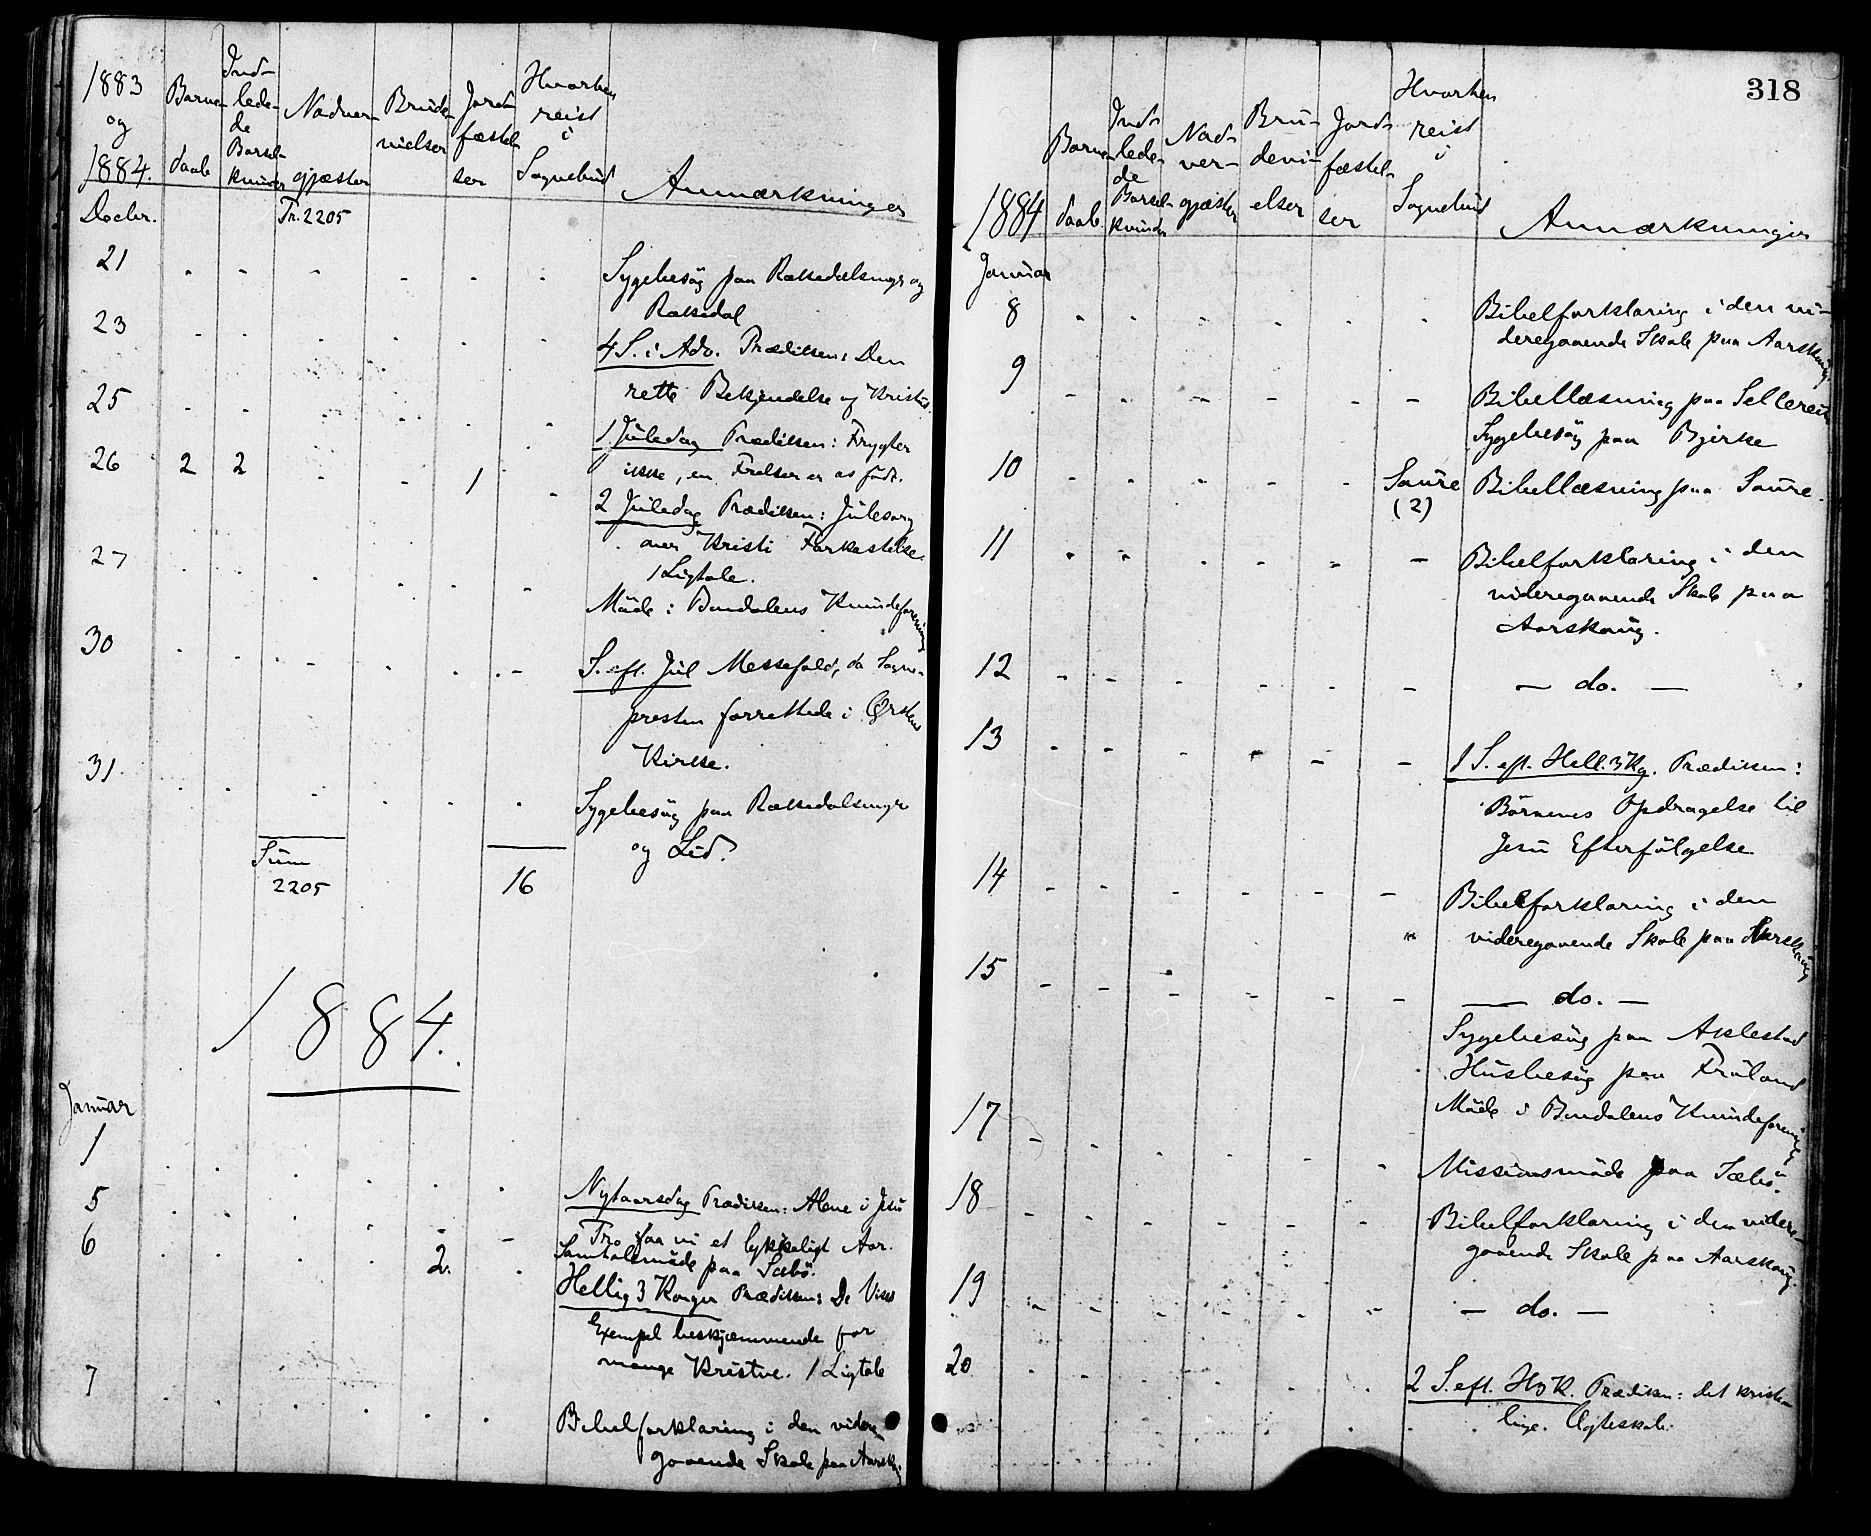 1883 og 1884.
Barne daab
Indledede Barselkvinder
Nadver gjæster
Brudevielser
Jordfæstelser
Hvorhen reist i Sognebud
Anmærkninger
Decbr.
Tr. 2205
21
Sygebesög paa Rækedalsmyr og
Rækedal
23
4 S. i Adv. Prædiken: Den
rette Bekjendelse af Kristus.
25
1 Juledag Prædiken: Frygter
ikke, en Frelser er os född.
26 2 2 1
2 Juledag Prædiken: Julesorg
over Kristi Forkastelse.
1 Ligtale.
27
Möde i Bondalens Kvindeforening
30
S. eft. Jul Messefald, da Sogne-
presten forrettede i Ørsten
Kirke.
31
Sygebesög paa Rækedalsmyr
og Lid.
Sum
2205 16
1884.
Januar
1
Nytaarsdag Prædiken: Alene i Jesu
Tro faa vi et lykkeligt Aar.
5
Samtalemöde paa Sæbö.
6 2.
Hellig 3 Konger Prædiken: De Vises
Exempel beskjæmmende for
mange Kristne. 1 Ligtale
7
Bibelforklaring i den videre
gaaende Skole paa Aarskoug
318
1884
Barne daab.
Indledede Barselkvinder
Nadvergjæster
Brudevielser
Jordfæstelser
Hvorhen reist i Sognebud
Anmærkninger
Januar
8
Bibelforklaring i den vi-
deregaaende Skole paa Aarskoug
9
Bibellæsning paa
Sygebesög paa Bjerke
10 Saure
(2)
Bibellæsning paa Saure.
11
Bibelforklaring i den
videregaaende Skole paa
Aarskoug.
12
— do. —
13
1 S. eft. Hell. 3 Kg. Prædiken:
Börnenes Opdragelse til
Jesu Efterfölgelse
14
Bibelforklaring i den
videregaaende Skole paa Aarskoug
15
— do. —
Sygebesög paa Aklestad
Husbesög paa Frøland
17
Möde i Bondalens Kvindeforening
Missionsmöde paa Sæbö.
18
Bibelforklaring i den videre-
gaaende Skole paa Aarskoug.
19
— do. —
20
2 S. eft. H3K. Prædiken: det kriste-
lige Ægteskab.